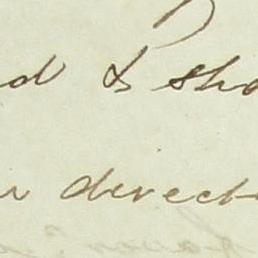 d & sho
r direct